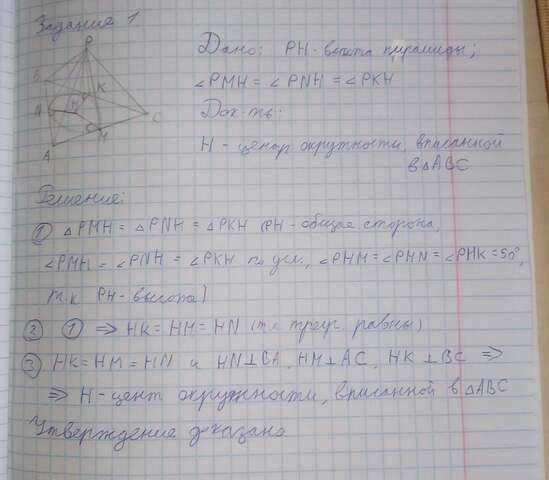 Задание 1
P
B
K
N
H
C
M
A
Дано: PH - высота пирамиды;
∠PMH = ∠PNH = ∠PKH
Док-ть:
H - центр окружности, вписанной
в △ABC
Решение:
① △PMH = △PNH = △PKH (PH - общая сторона,
∠PMH = ∠PNH = ∠PKH по усл., ∠PHM = ∠PHN = ∠PHK = 90°,
т.к PH - высота)
② ① ⇒ HK = HM = HN (т.к треуг. равны)
③ HK = HM = HN и HN⊥BA, HM⊥AC, HK ⊥ BC ⇒
⇒ H - цент окружности, вписанной в △ABC
Утверждение доказано.